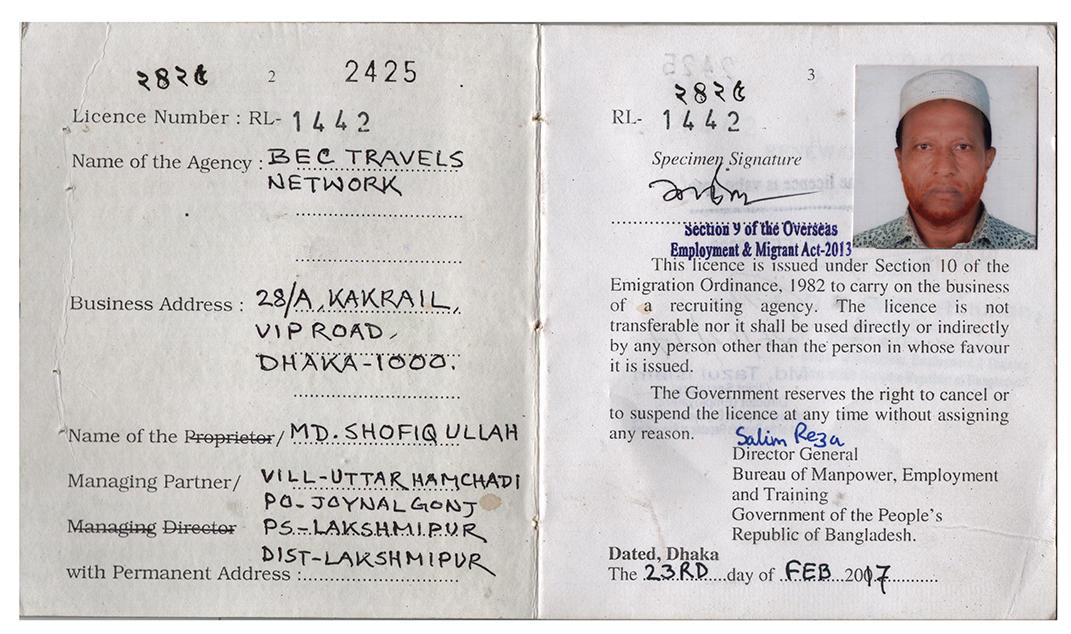 ২৪২৫ 2 2425
Licence Number : RL- 1442
Name of the Agency : BEC TRAVELS
NETWORK
Business Address : 28/A, KAKRAIL,
VIP ROAD,
DHAKA-1000.
Name of the Proprietor/ MD. SHOFIQ ULLAH
Managing Partner/ VILL-UTTAR HAMCHADI
PO-JOYNAL GONJ
Managing Director PS-LAKSHMIPUR
DIST-LAKSHMIPUR
with Permanent Address :
3
২৪২৫
RL- 1442
Specimen Signature
Section 9 of the Overseas
Employment & Migrant Act-2013
This licence is issued under Section 10 of the
Emigration Ordinance, 1982 to carry on the business
of a recruiting agency. The licence is not
transferable nor it shall be used directly or indirectly
by any person other than the person in whose favour
it is issued.
The Government reserves the right to cancel or
to suspend the licence at any time without assigning
any reason.
Salim Reza
Director General
Bureau of Manpower, Employment
and Training
Government of the People's
Republic of Bangladesh.
Dated, Dhaka
The 23RD day of FEB 2017